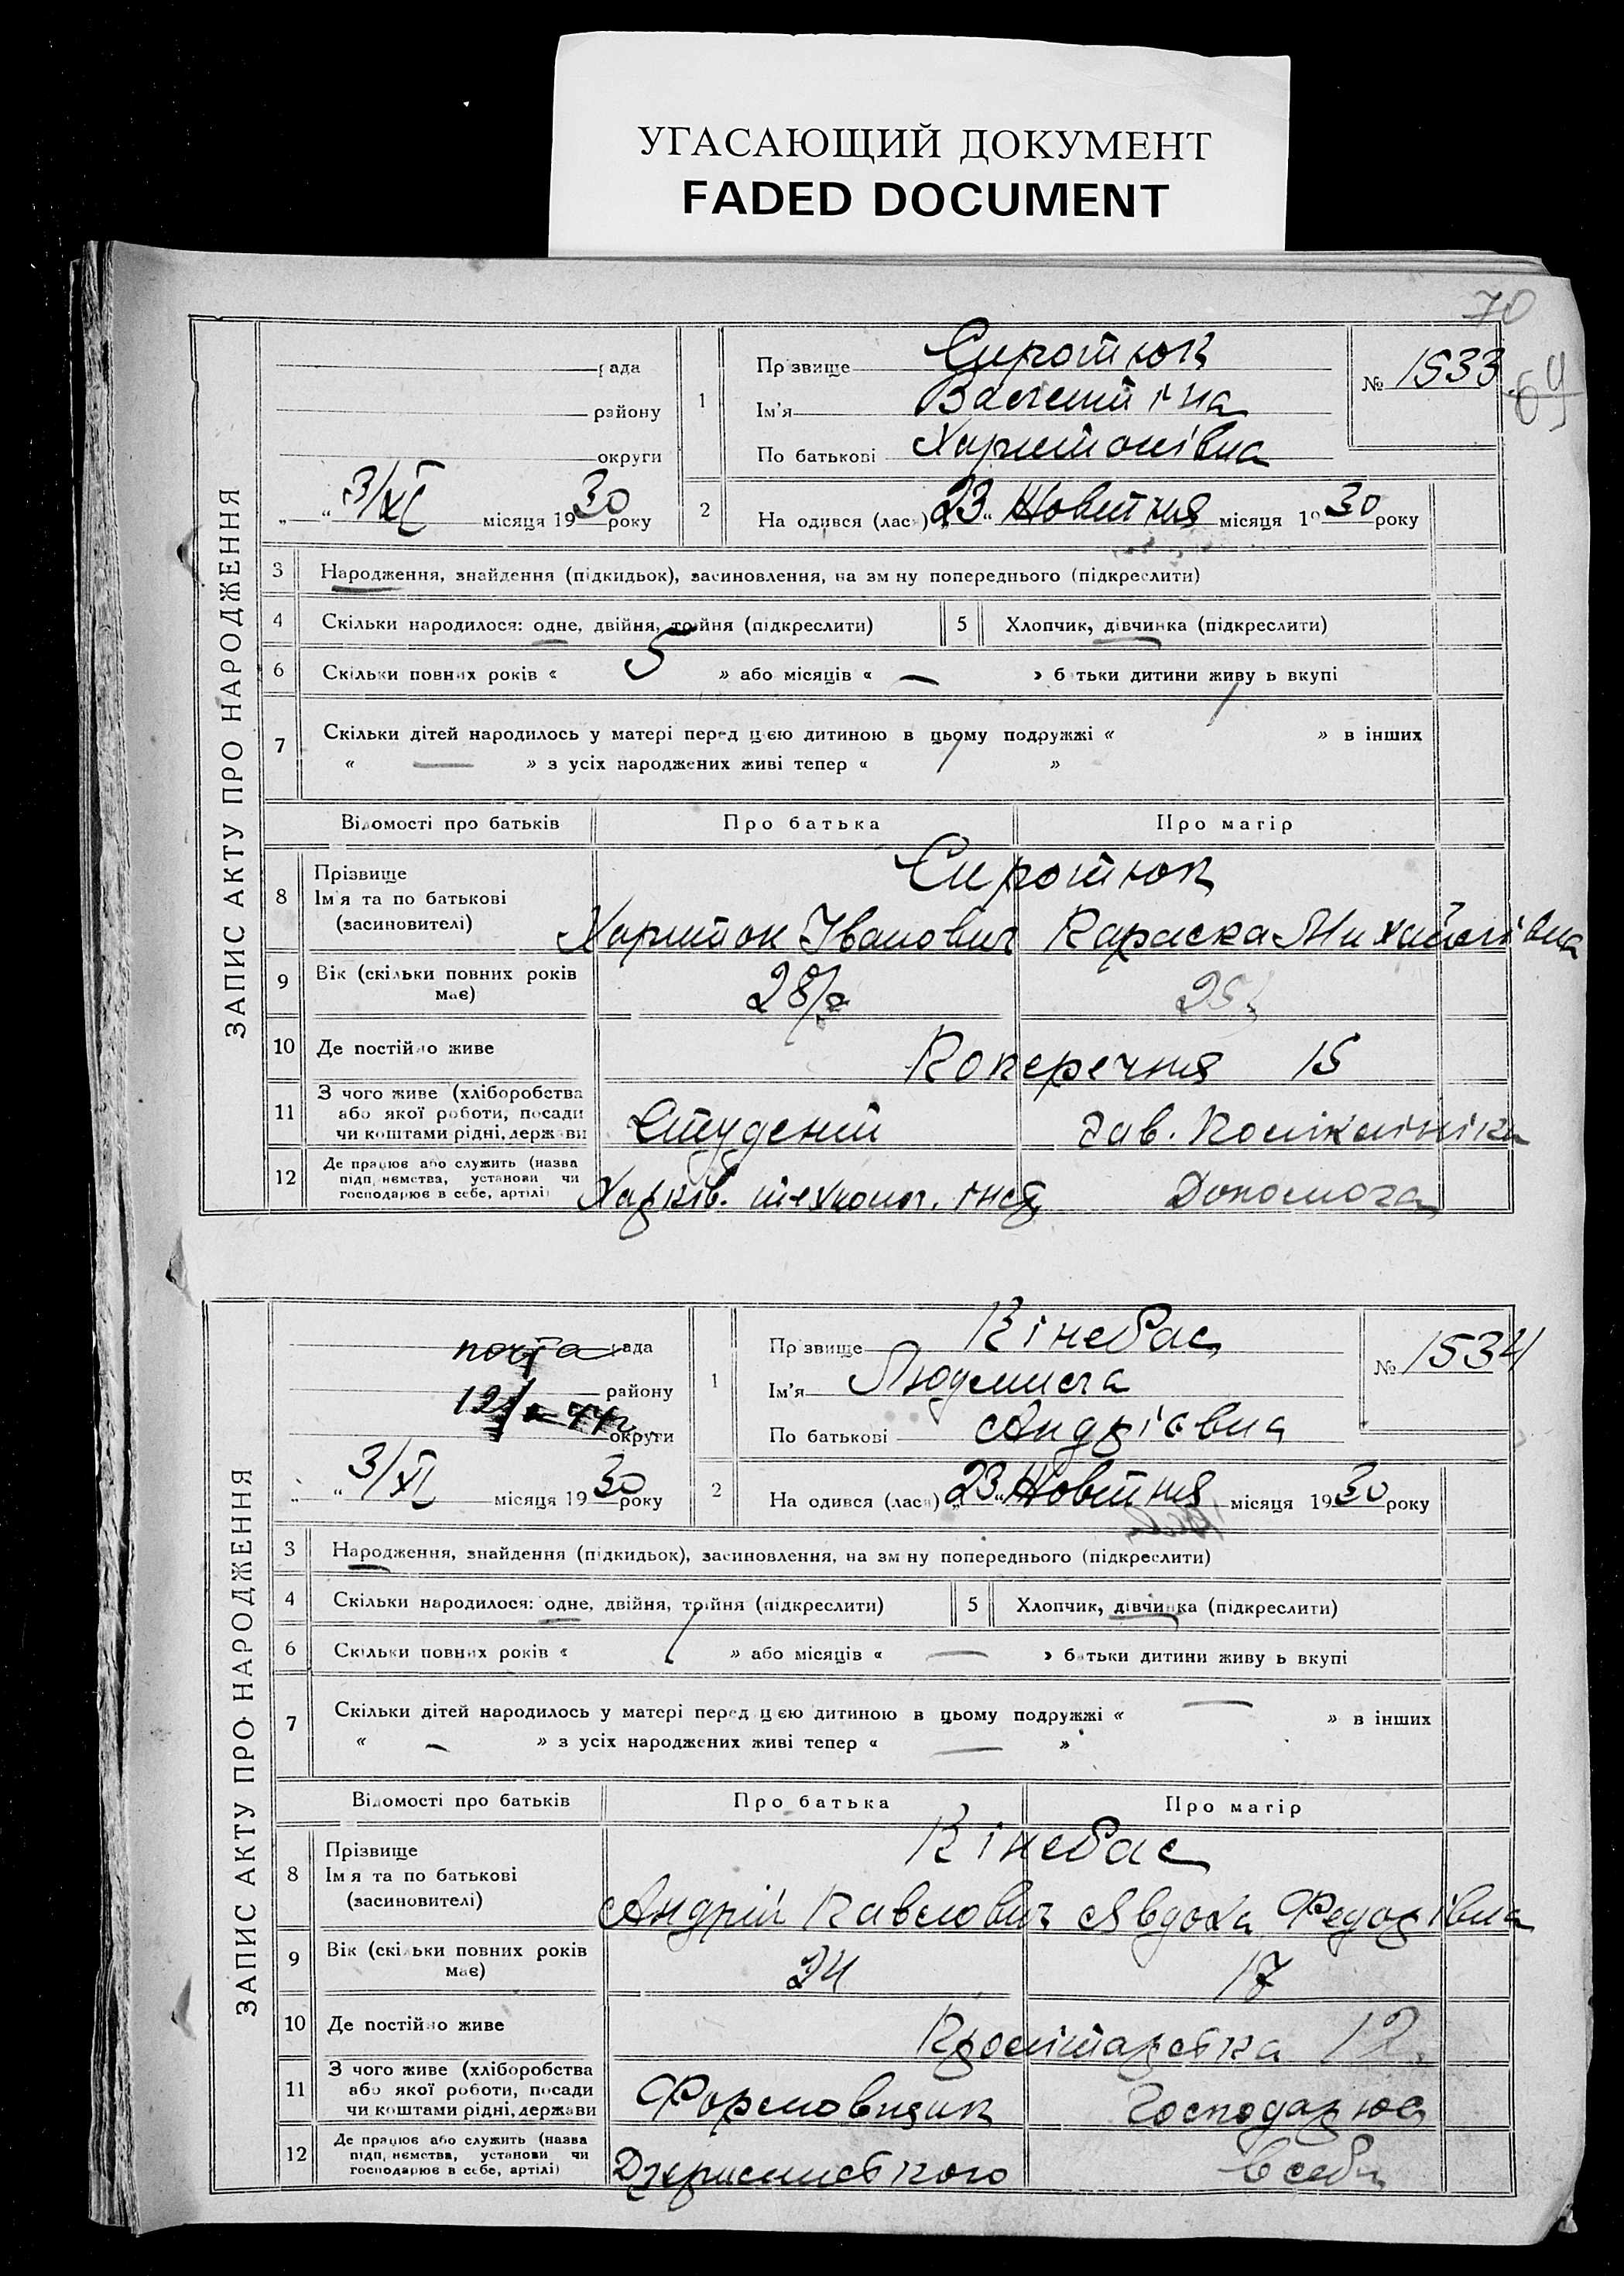 УГАСАЮЩИЙ ДОКУМЕНТ
FADED DOCUMENT
70
69
ЗАПИС АКТУ ПРО НАРОДЖЕННЯ
рада
району
округи
„ “ 3/XI місяця 1930 року
1
Прізвище Сиротюк
Ім'я Валентіна
По батькові Харитонівна
№ 1533
2
На одився (лась) „23“ Жовтня місяця 1930 року
3 Народження, знайдення (підкидьок), засиновлення, на зм ну попереднього (підкреслити)
4 Скільки народилося: одне, двійня, тройня (підкреслити) 5 Хлопчик, дівчинка (підкреслити)
6 Скільки повних років « 5 » або місяців « — » батьки дитини живу ь вкупі
7 Скільки дітей народилось у матері перед цією дитиною в цьому подружжі « 1 » в інших
« — » з усіх народжених живі тепер « 1 »
Відомості про батьків Про батька Про матір
8 Прізвище Сиротюк
Ім'я та по батькові
(засиновителі) Харитон Іванович Параска Михайлівна
9 Вік (скільки повних років має) 28 25
10 Де постійно живе Поперечня 15
11 З чого живе (хліборобства
або якої роботи, посади
чи коштами рідні, держави Студент Зав. Поліклініки
12 Де працює або служить (назва
підприємства, установи чи
господарює в себе, артілі) Харків. технол. інст. Допомога
ЗАПИС АКТУ ПРО НАРОДЖЕННЯ
почта рада
району
округи
„ “ 3/XI місяця 1930 року
1
Прізвище Кінебас
Ім'я Людмила
По батькові Андріївна
№ 1534
2
На одився (лась) „23“ Жовтня місяця 1930 року
3 Народження, знайдення (підкидьок), засиновлення, на зм ну попереднього (підкреслити)
4 Скільки народилося: одне, двійня, тройня (підкреслити) 5 Хлопчик, дівчинка (підкреслити)
6 Скільки повних років « 1 » або місяців « — » батьки дитини живу ь вкупі
7 Скільки дітей народилось у матері перед цією дитиною в цьому подружжі « — » в інших
« — » з усіх народжених живі тепер « — »
Відомості про батьків Про батька Про матір
8 Прізвище Кінебас
Ім'я та по батькові
(засиновителі) Андрій Павлович Явдоха Федорівна
9 Вік (скільки повних років має) 24 17
10 Де постійно живе Пролітарська 12
11 З чого живе (хліборобства
або якої роботи, посади
чи коштами рідні, держави Формовщик Господарює
12 Де працює або служить (назва
підприємства, установи чи
господарює в себе, артілі) в себе